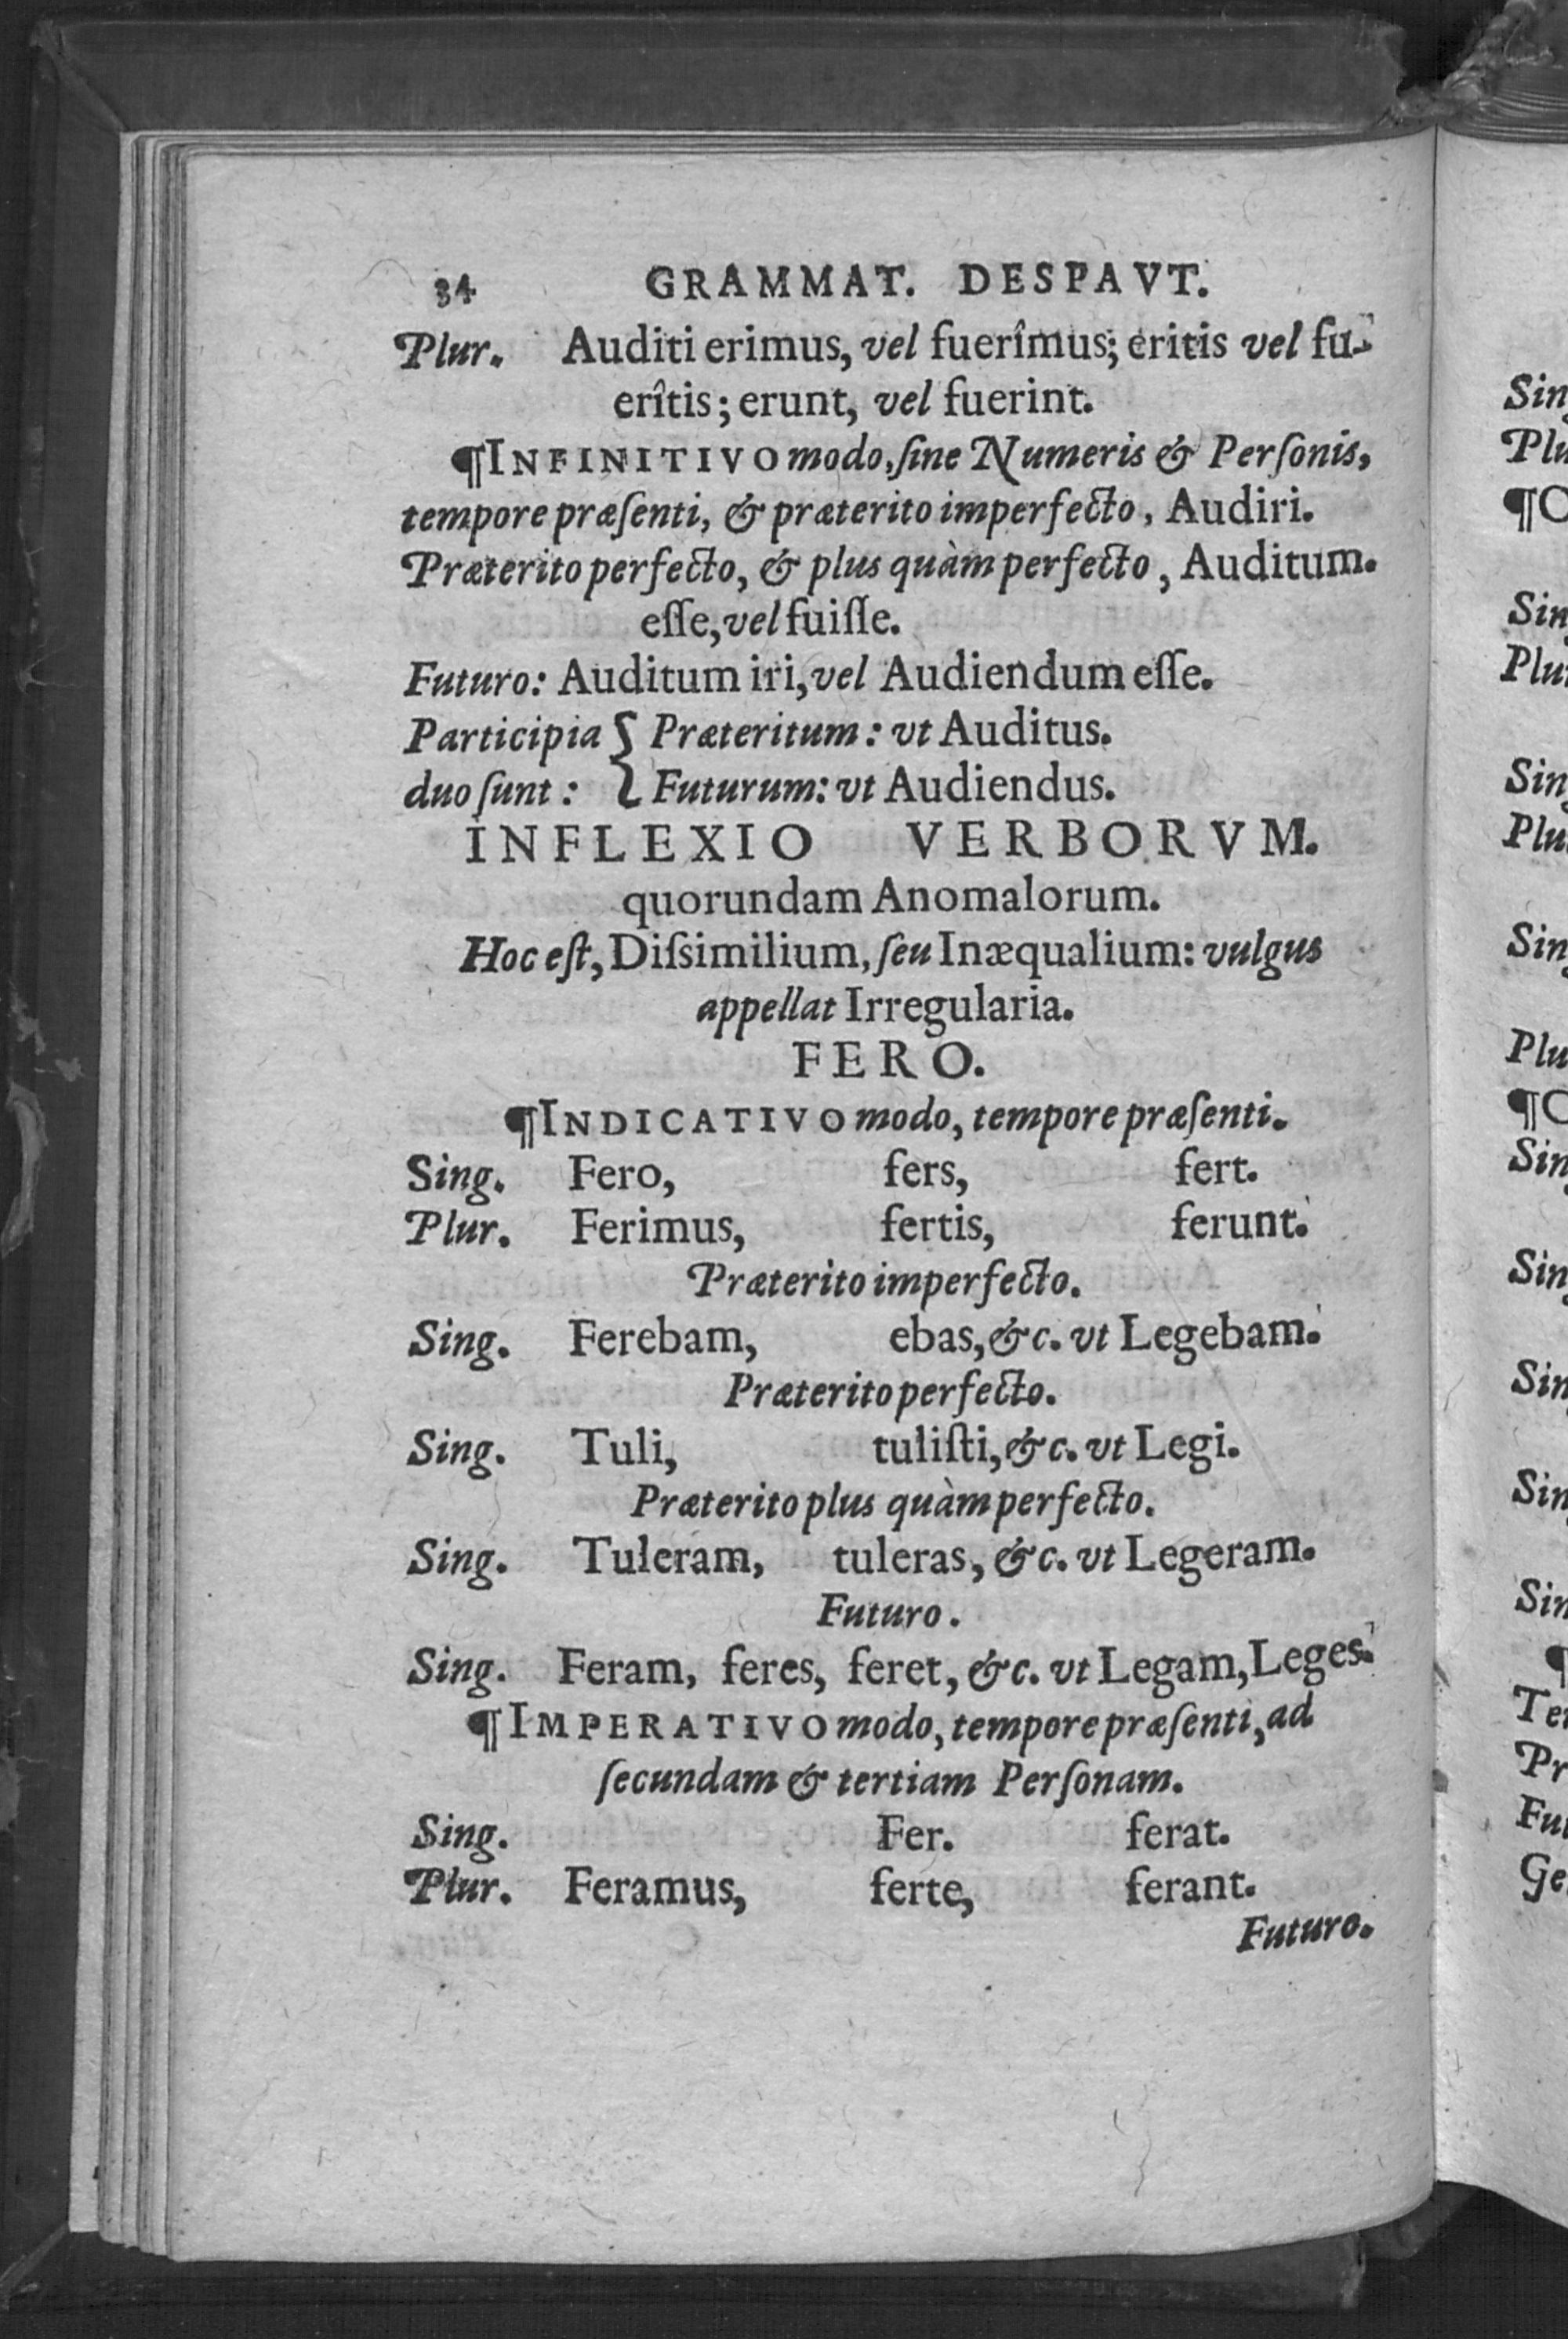 34 GRAMMAT. DESPAVT.
Plur. Auditi erimus, vel fuerîmus; eritis vel fu-
erîtis; erunt, vel fuerint.
¶INFINITIVO modo, ſine Numeris & Perſonis,
tempore præſenti, & præterito imperfecto, Audiri.
Præterito perfecto, & plus quàm perfecto, Auditum.
eſſe, vel fuiſſe.
Futuro: Auditum iri, vel Audiendum eſſe.
Participia { Præteritum: vt Auditus.
duo ſunt: Futurum: vt Audiendus.
INFLEXIO VERBORVM.
quorundam Anomalorum.
Hoc eſt, Diſsimilium, ſeu Inæqualium: vulgus
appellat Irregularia.
FERO.
¶INDICATIVO modo, tempore præſenti.
Sing. Fero, fers, fert.
Plur. Ferimus, fertis, ferunt.
Præterito imperfecto.
Sing. Ferebam, ebas, &c. vt Legebam.
Præterito perfecto.
Sing. Tuli, tuliſti, &c. vt Legi.
Præterito plus quàm perfecto.
Sing. Tuleram, tuleras, &c. vt Legeram.
Futuro.
Sing. Feram, feres, feret, &c. vt Legam, Leges.
¶IMPERATIVO modo, tempore præſenti, ad
ſecundam & tertiam Perſonam.
Sing. Fer. ferat.
Plur. Feramus, ferte, ferant.
Futuro.